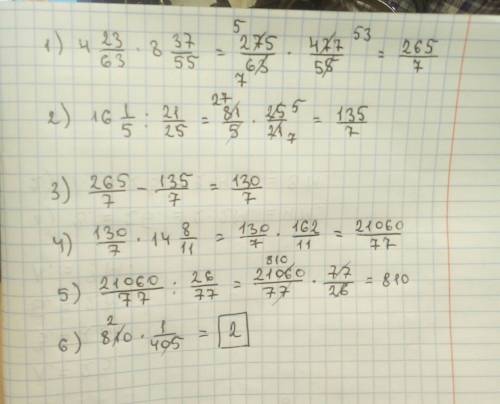 1) 4 23/63 · 8 37/55 = 275/63 · 477/55 = 265/7 5 7 53
2) 16 1/5 : 21/25 = 81/5 · 25/21 = 135/7 27 5 7
3) 265/7 - 135/7 = 130/7
4) 130/7 · 14 8/11 = 130/7 · 162/11 = 21060/77
5) 21060/77 : 26/77 = 21060/77 · 77/26 = 810 810
6) 810 · 1/405 = 2 2